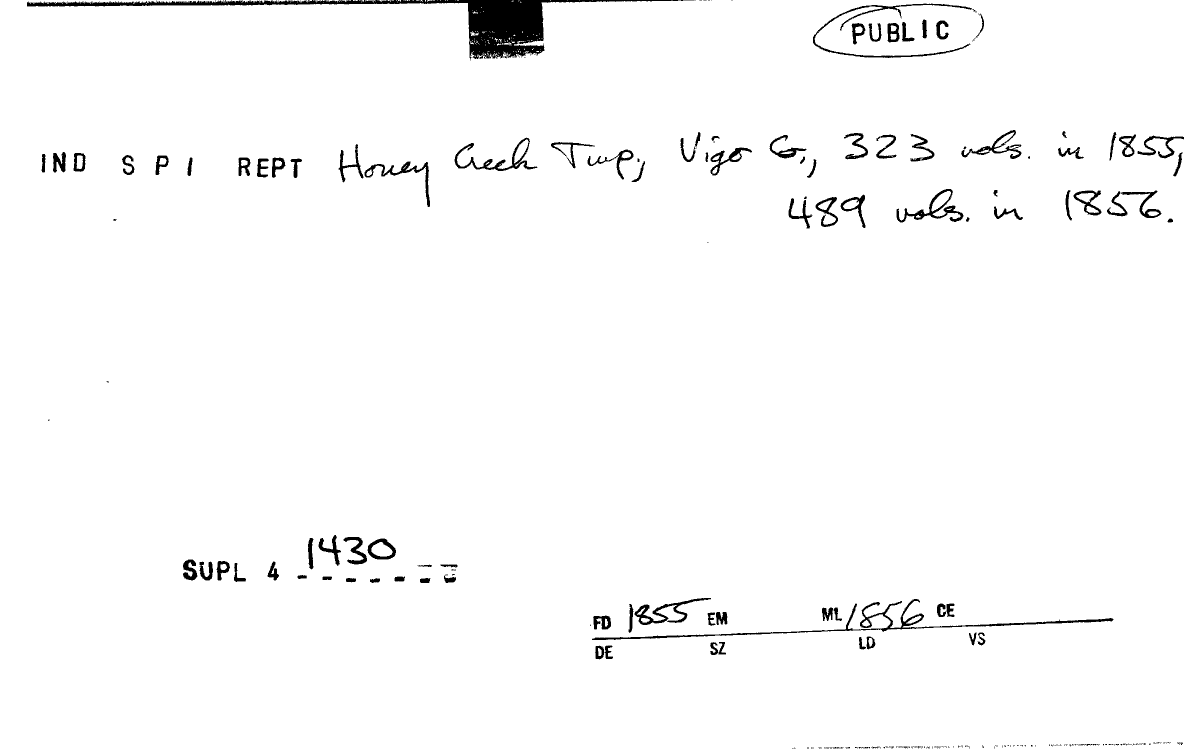 PUBLIC
IND S P I REPT Honey Creek Twp, Vigo Co., 323 vols. in 1855,
489 vols. in 1856.
SUPL 4 1430
FD 1855 EM ML 1856 CE
DE SZ LD VS